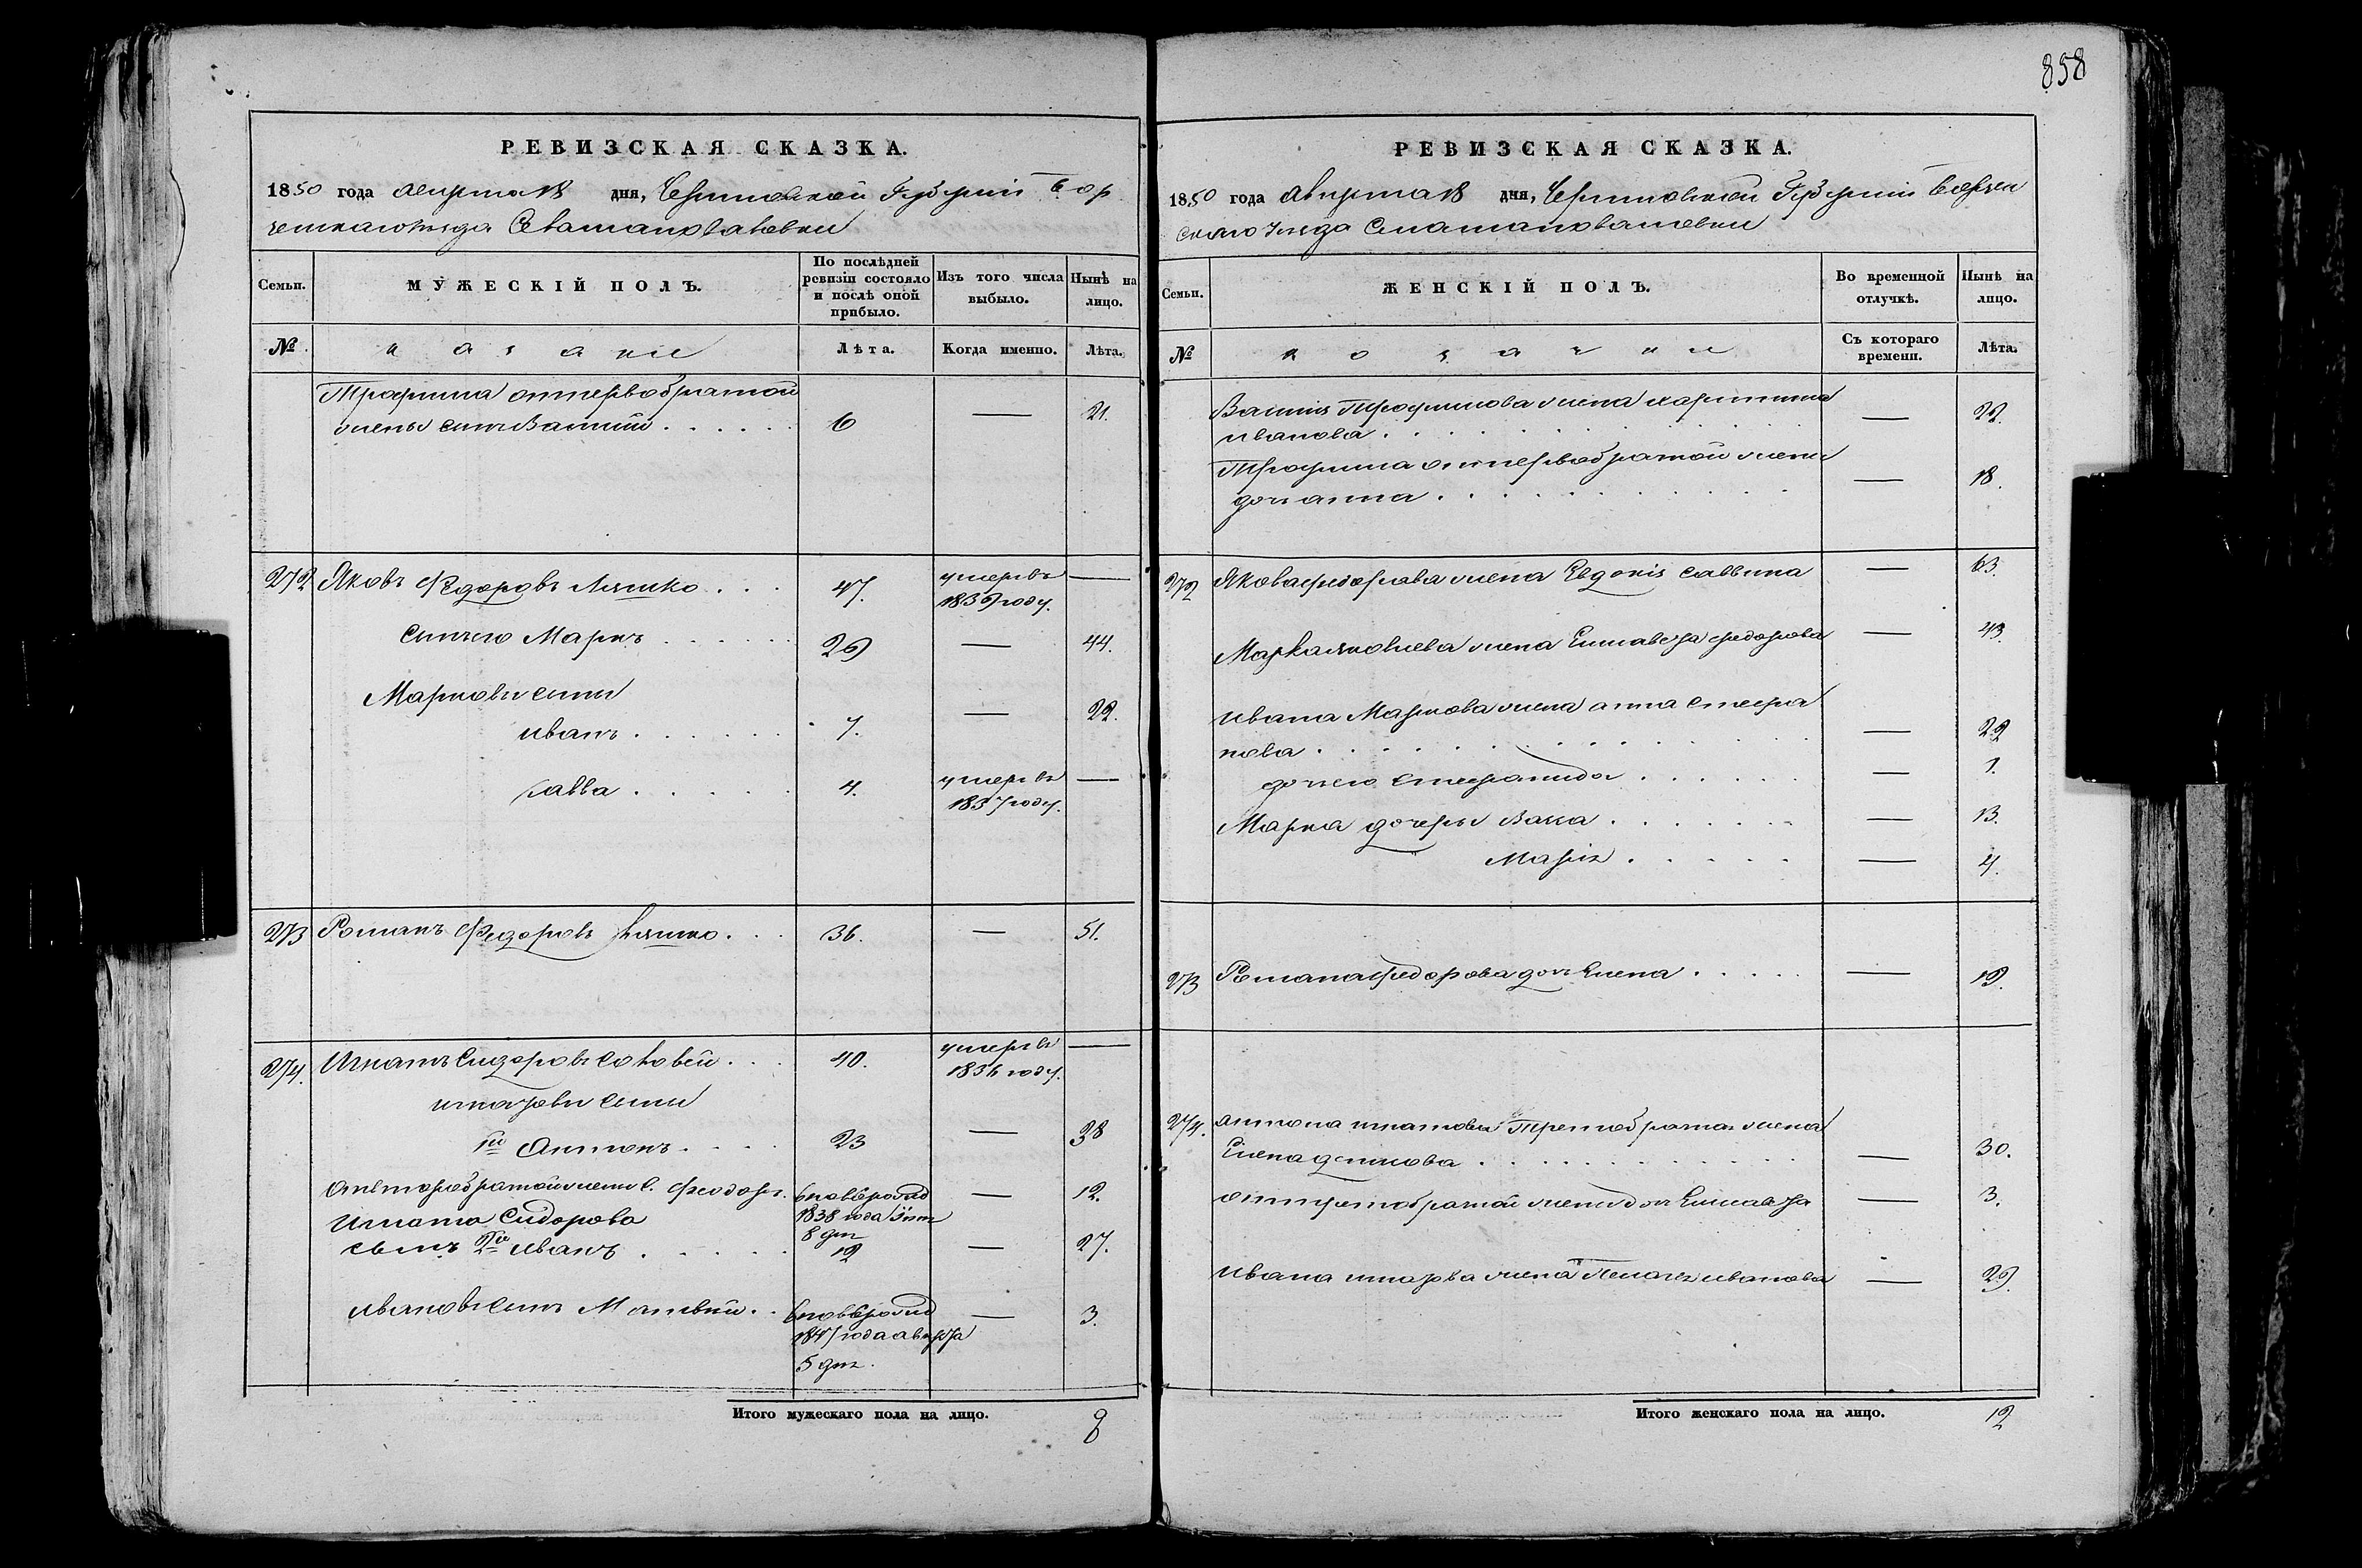 858
РЕВИЗСКАЯ СКАЗКА.
1850 года августа 18 дня, Черниговской Губернии Бор
Семьи.
МУЖЕСКІЙ ПОЛЪ.
По послѣдней ревизіи состояло и послѣ оной прибыло.
Изъ того числа выбыло.
Нынѣ на лицо.
№
казаки
Лѣта.
Когда именно.
Лѣта.
Трофима отпервобрачной
жены сынъ Василій 6 — 21.
272 Яковъ Федоровъ Ляшко 47. умеръ въ 1839 году. —
Сынъ его Маркъ 29 — 44.
Марковы сыны
иванъ 7. — 22.
савва 4. умеръ въ 1837 году. —
273 Романъ Федоровъ Ляшко 36. — 51.
274. Игнатъ Сидоровъ 40. умеръ въ 1836 году. —
игнатовы сыны
1й Антонъ 23 — 38
Отвторобрачной жены с. Феодоръ вновьрожд 1838 года 8 дня — 12.
Игната Сидорова
сынъ 2й иванъ 12 — 27.
ивановъ сынъ Матвѣй вновьрожд 1847 года августа 5 дня — 3.
Итого мужескаго пола на лицо. 8
РЕВИЗСКАЯ СКАЗКА.
1850 года августа 18 дня, Черниговской Губерніи Борзен
скаго уезда
Семьи.
ЖЕНСКІЙ ПОЛЪ.
Во временной отлучкѣ.
Нынѣ на лицо.
№
козачки
Съ котораго времени.
Лѣта.
Василія Трофимова жена
иванова — 22.
Трофима отпервобрачной жены
дочь анна — 18.
272 Якова федорова жена Евдокія саввина — 63.
Марка яковлева жена Елисавета федорова — 43.
ивана Маркова жена анна стефа
нова — 22
дочь его стефанида — 1.
Марка дочеры Васса — 13.
Марія — 4.
273 Романа федорова дочь Елена — 19.
274. антона игнатова Третобрачная жена
Елена — 30.
оттретобрачной жены дочь Елисавета — 3.
ивана игнатова жена Пелагея иванова — 29.
Итого женскаго пола на лицо. 12